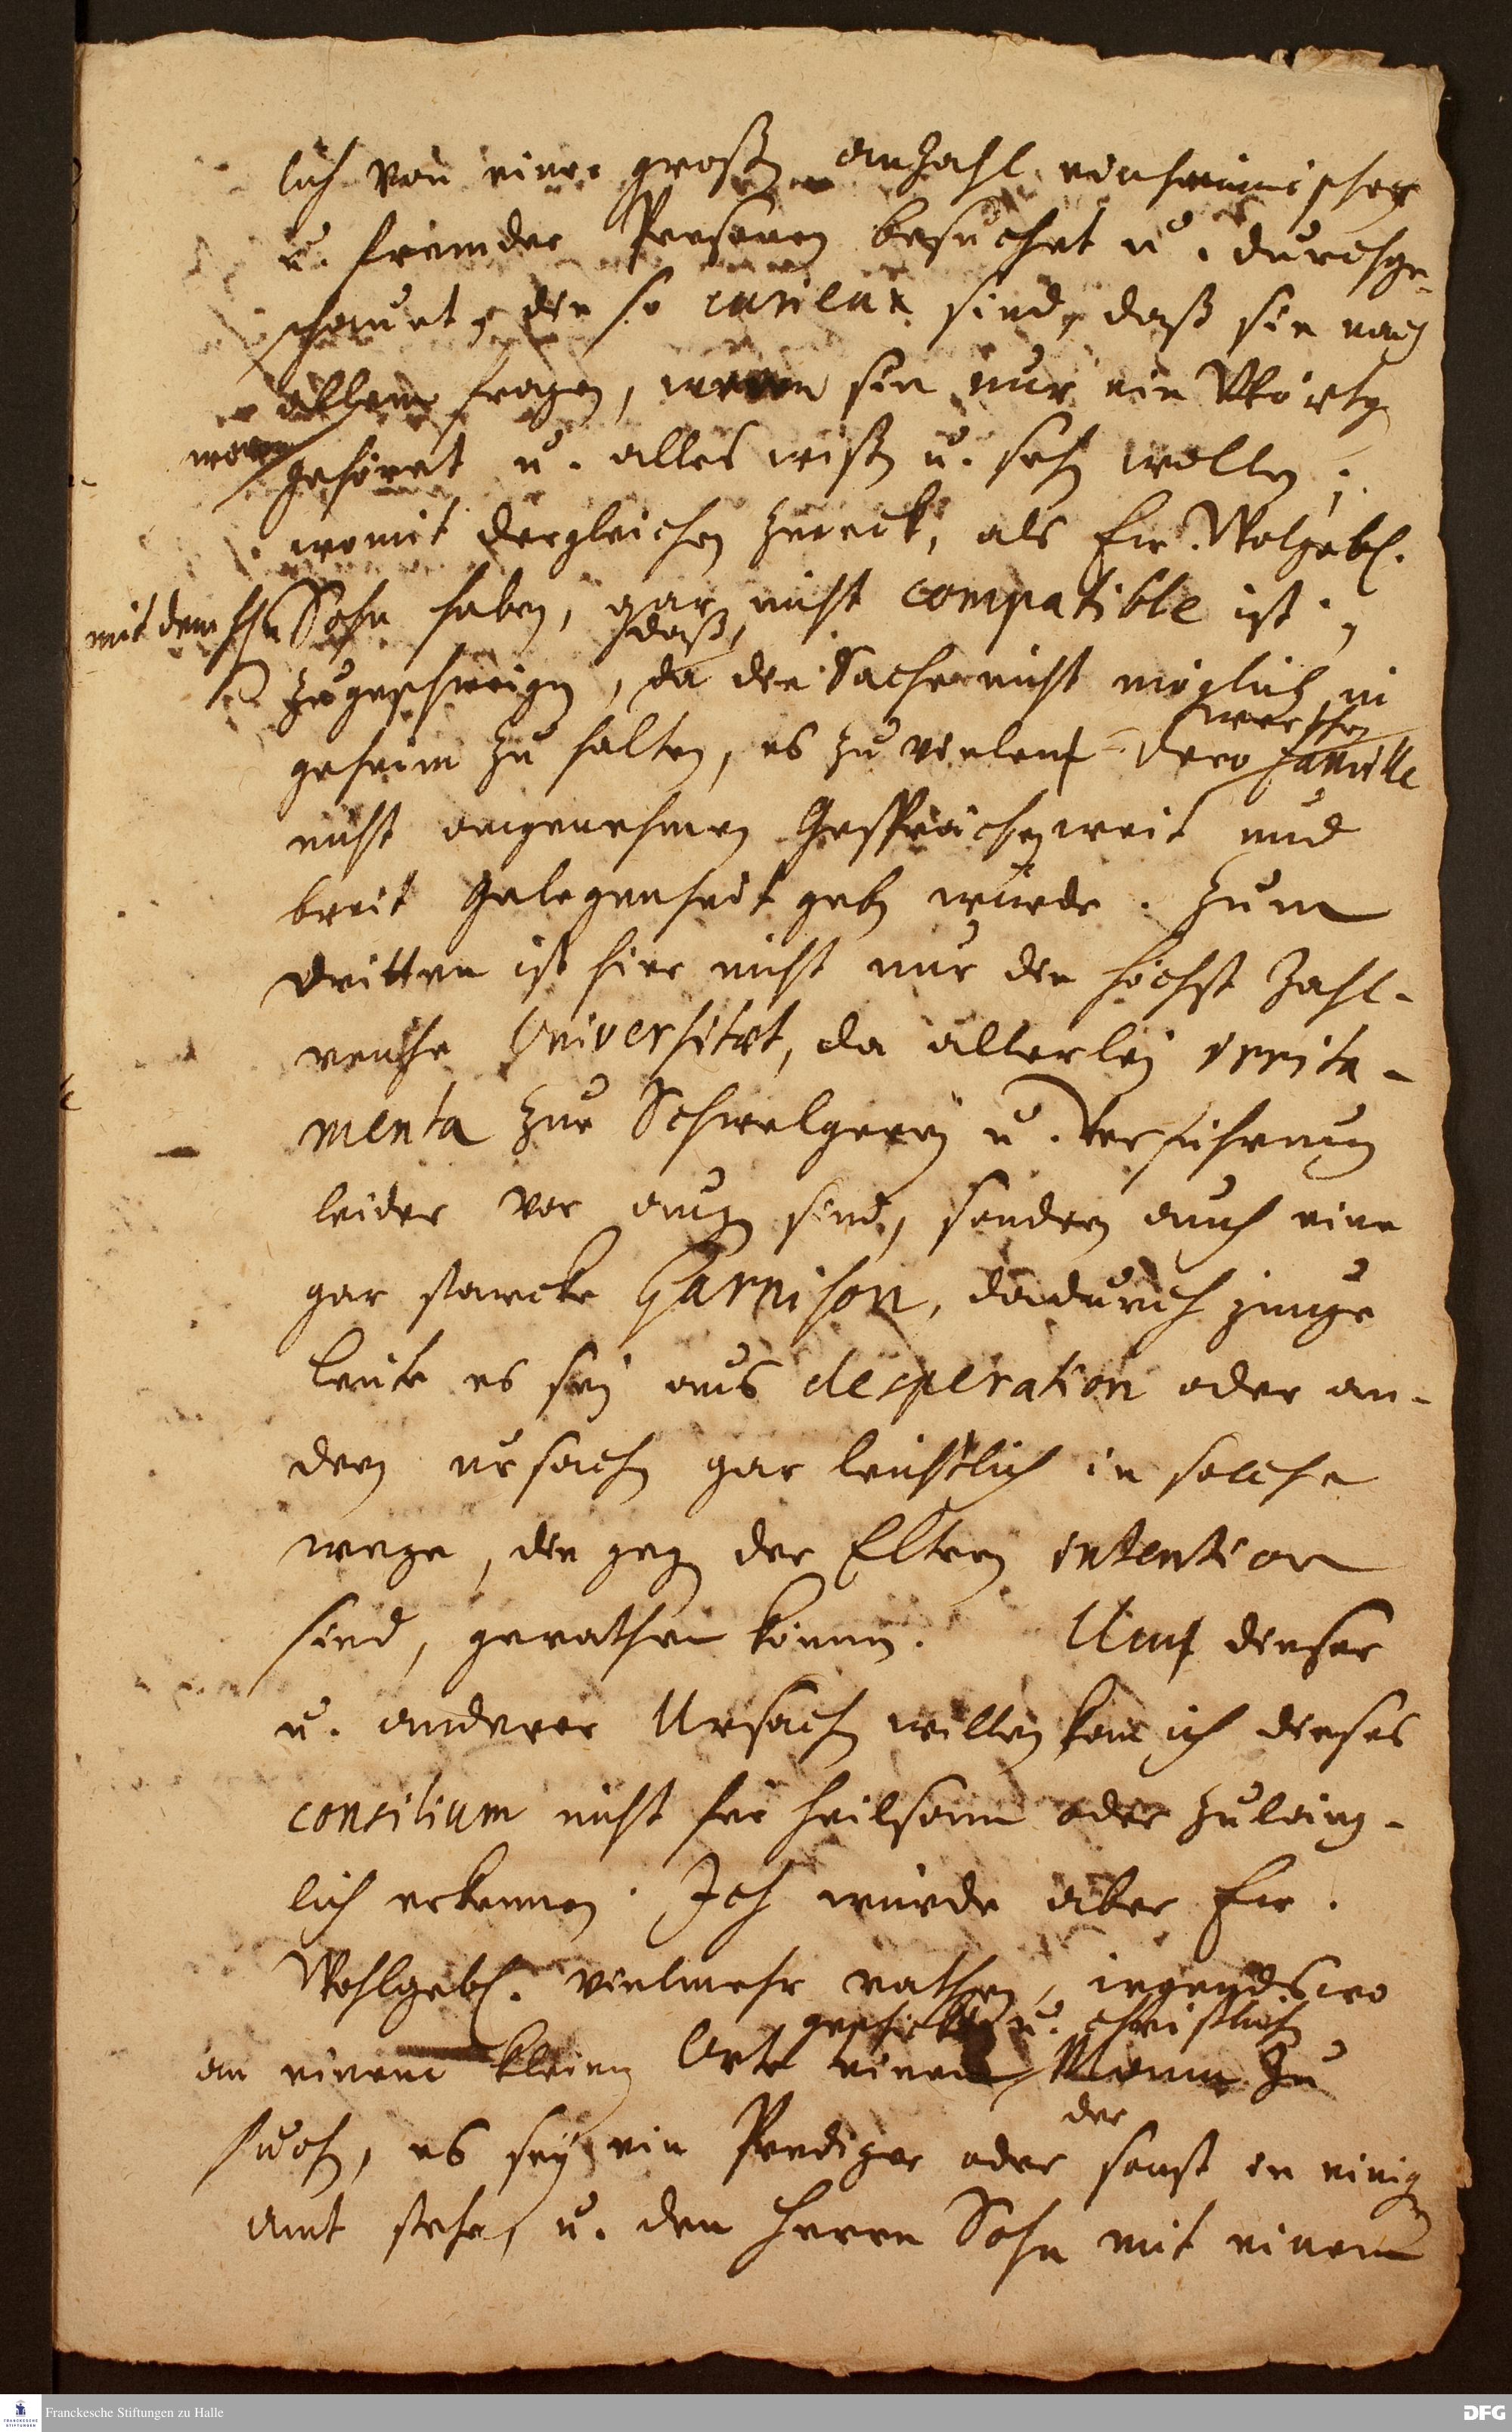 lich von einer großen anzahl einheimischer
u. fremder Personen besuchet u. durchge-
schauet, die so curieux sind, daß sie nach
allem fragen, wenn sie nur ein Wörtgen
wovon
gehöret u. alles wißen u. sehen wollen;
womit dergleichen zweck, als Ew. Wolgeb.
mit dem Hn Sohn haben, gar nicht compatible ist;
zugeschweigen, daß, da die Sache nicht möglich
geheim zu halten, es zu vielen Dero familie
nicht angenehmen Gesprächen weit und
breit Gelegenheit geben würde. Zum
dritten ist hier nicht nur die höchst Zahl-
reiche Universitæt, da allerley irrita-
menta zur Schwelgerey u. Verführung
leider vor augen sind, sondern auch eine
gar starcke Garnison, dadurch junge
Leute es sey aus desperation oder an-
dern ursachen gar leichtlich in solche
wege, die gegen der Eltern intention
sind, gerathen können. Um dieser
u. anderer Ursachen willen kan ich dieses
consilium nicht für heilsam oder zuläng-
lich erkennen. Ich würde aber Ew.
Wohlgeb. vielmehr rathen, irgendswo
geschickten u. christlichen
an einem kleinen Orte einen Mann zu
suchen, es sey ein Prediger oder der sonst in einigen
amt stehe, u. den Herrn Sohn mit einem
Franckesche Stiftungen zu Halle
DFG